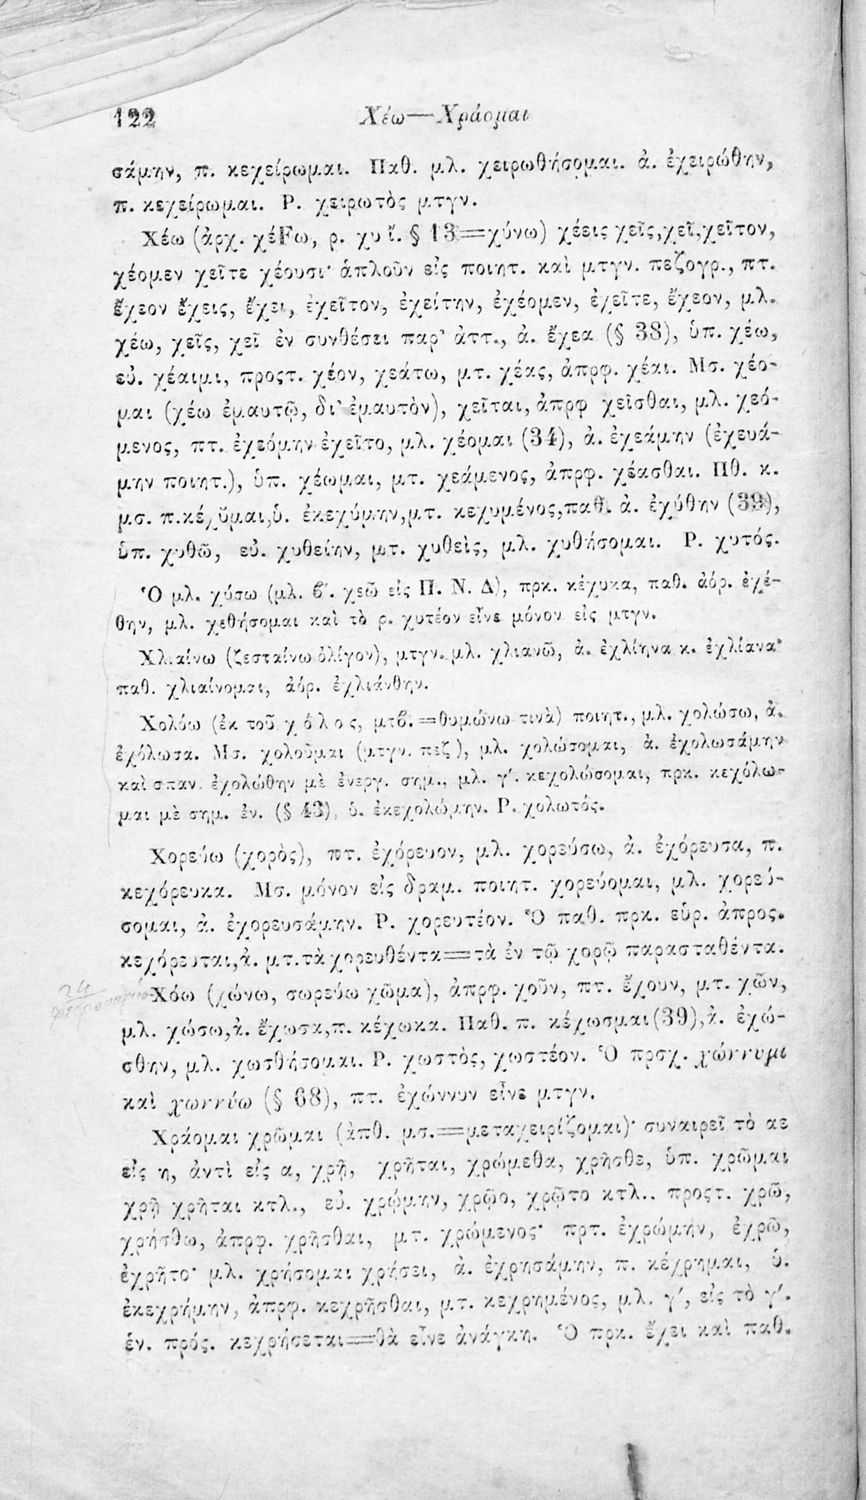 122
Χέω—Χράομαι
σάμην, π. κεχείρωμαι. Παθ. μλ. χειρωθήσομαι. ἀ. ἐχειρώθην,
π. κεχείρωμαι. Ρ. χειρωτὸς μτγν.
Χέω (ἀρχ. χέFω, ρ. χυ ἴ. § 13=χύνω) χέεις χεῖς,χεῖ,χεῖτον,
χέομεν χεῖτε χέουσι· ἁπλοῦν εἰς ποιητ. καὶ μτγν. πεζογρ., πτ.
ἔχεον ἔχεις, ἔχει, ἐχεῖτον, ἐχείτην, ἐχέομεν, ἐχεῖτε, ἔχεον, μλ.
χέω, χεῖς, χεῖ ἐν συνθέσει παρ' ἀττ., ἀ. ἔχεα (§ 38), ὑπ. χέω,
εὐ. χέαιμι, προςτ. χέον, χεάτω, μτ. χέας, ἀπρφ. χέαι. Μσ. χέο-
μαι (χέω ἐμαυτῷ, δι' ἐμαυτὸν), χεῖται, ἀπρφ χεῖσθαι, μλ. χεό-
μενος, πτ. ἐχεόμην ἐχεῖτο, μλ. χέομαι (34), ἀ. ἐχεάμην (ἐχευά-
μην ποιητ.), ὑπ. χέωμαι, μτ. χεάμενος, ἀπρφ. χέασθαι. Πθ. κ.
μσ. π.κέχῠμαι,ὑ. ἐκεχύμην,μτ. κεχυμένος,παθ. ἀ. ἐχύθην (39),
ὑπ. χυθῶ, εὐ. χυθείην, μτ. χυθεὶς, μλ. χυθήσομαι. Ρ. χυτός.
Ὁ μλ. χύσω (μλ. ϐ'. χεῶ εἰς Π. Ν. Δ), πρκ. κέχυκα, παθ. ἀόρ. ἐχέ-
θην, μλ. χεθήσομαι καὶ τὸ ρ. χυτέον εἶνε μόνον εἰς μτγν.
Χλιαίνω (ζεσταίνω ὀλίγον), μτγν. μλ. χλιανῶ, ἀ. ἐχλίηνα κ. ἐχλίανα·
παθ. χλιαίνομαι, ἀόρ. ἐχλιάνθην.
Χολόω (ἐκ τοῦ χόλος, μτϐ.=θυμώνω τινὰ) ποιητ., μλ. χολώσω, ἀ.
ἐχόλωσα. Μσ. χολοῦμαι (μτγν. πεζ), μλ. χολώσομαι, ἀ. ἐχολωσάμην
καὶ σπαν. ἐχολώθην μὲ ἐνεργ. σημ., μλ. γ'. κεχολώσομαι, πρκ. κεχόλω-
μαι μὲ σημ. ἐν. (§ 43), ὑ. ἐκεχολώμην. Ρ. χολωτός.
Χορεύω (χορὸς), πτ. ἐχόρευον, μλ. χορεύσω, ἀ. ἐχόρευσα, π.
κεχόρευκα. Μσ. μόνον εἰς δραμ. ποιητ. χορεύομαι, μλ. χορεύ-
σομαι, ἀ. ἐχορευσάμην. Ρ. χορευτέον. Ὁ παθ. πρκ. εὑρ. ἀπρος.
κεχόρευται,ἀ. μτ.τὰ χορευθέντα=τὰ ἐν τῷ χορῷ παρασταθέντα.
Χόω (χώνω, σωρεύω χῶμα), ἀπρφ. χοῦν, πτ. ἔχουν, μτ. χῶν,
μλ. χώσω,ἀ. ἔχωσα,π. κέχωκα. Παθ. π. κέχωσμαι(39),ἀ. ἐχώ-
σθην, μλ. χωσθήσομαι. Ρ. χωστὸς, χωστέον. Ὁ πρσχ. χώννυμι
καὶ χωννύω (§ 68), πτ. ἐχώννυν εἶνε μτγν.
Χράομαι χρῶμαι (ἀπθ. μσ.=μεταχειρίζομαι)· συναιρεῖ τὸ αε
εἰς η, ἀντὶ εἰς α, χρῇ, χρῆται, χρώμεθα, χρῆσθε, ὑπ. χρῶμαι
χρῇ χρῆται κτλ., εὐ. χρῴμην, χρῷο, χρῷτο κτλ.. προςτ. χρῶ,
χρήσθω, ἀπρφ. χρῆσθαι, μτ. χρώμενος· πρτ. ἐχρώμην, ἐχρῶ,
ἐχρῆτο· μλ. χρήσομαι χρήσει, ἀ. ἐχρησάμην, π. κέχρημαι, ὑ.
ἐκεχρήμην, ἀπρφ. κεχρῆσθαι, μτ. κεχρημένος, μλ. γ', εἰς τὸ γ'.
ἑν. πρός. κεχρήσεται=θὰ εἶνε ἀνάγκη. Ὁ πρκ. ἔχει καὶ παθ.